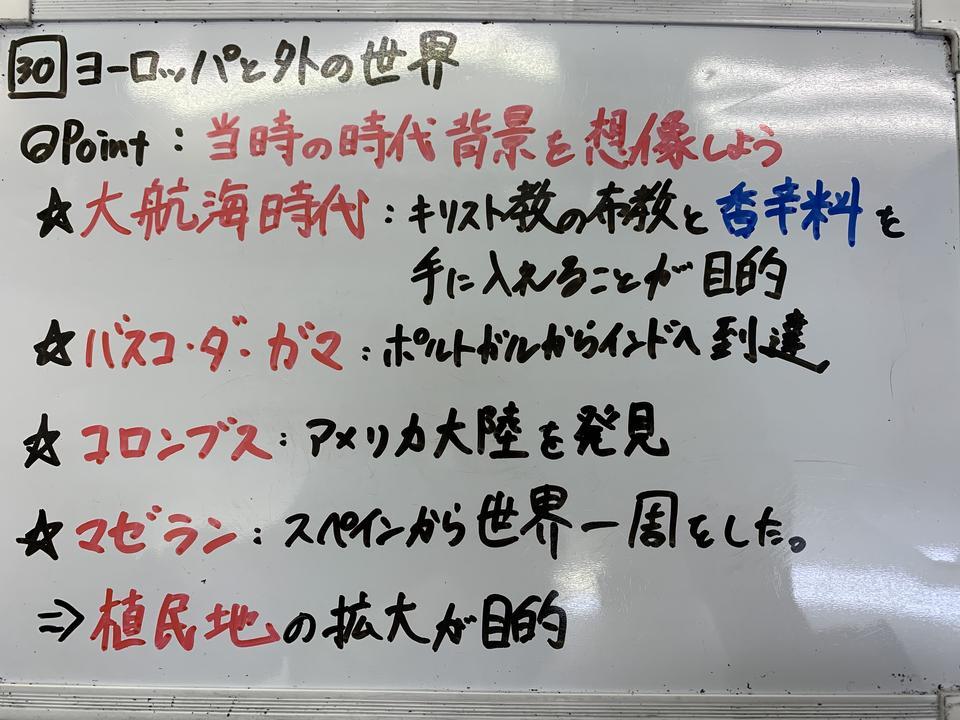 30 ヨーロッパと外の世界
◎Point：当時の時代背景を想像しよう
☆大航海時代：キリスト教の布教と香辛料を
手に入れることが目的
☆バスコ・ダ・ガマ：ポルトガルからインドへ到達
☆コロンブス：アメリカ大陸を発見
☆マゼラン：スペインから世界一周をした。
⇒植民地の拡大が目的